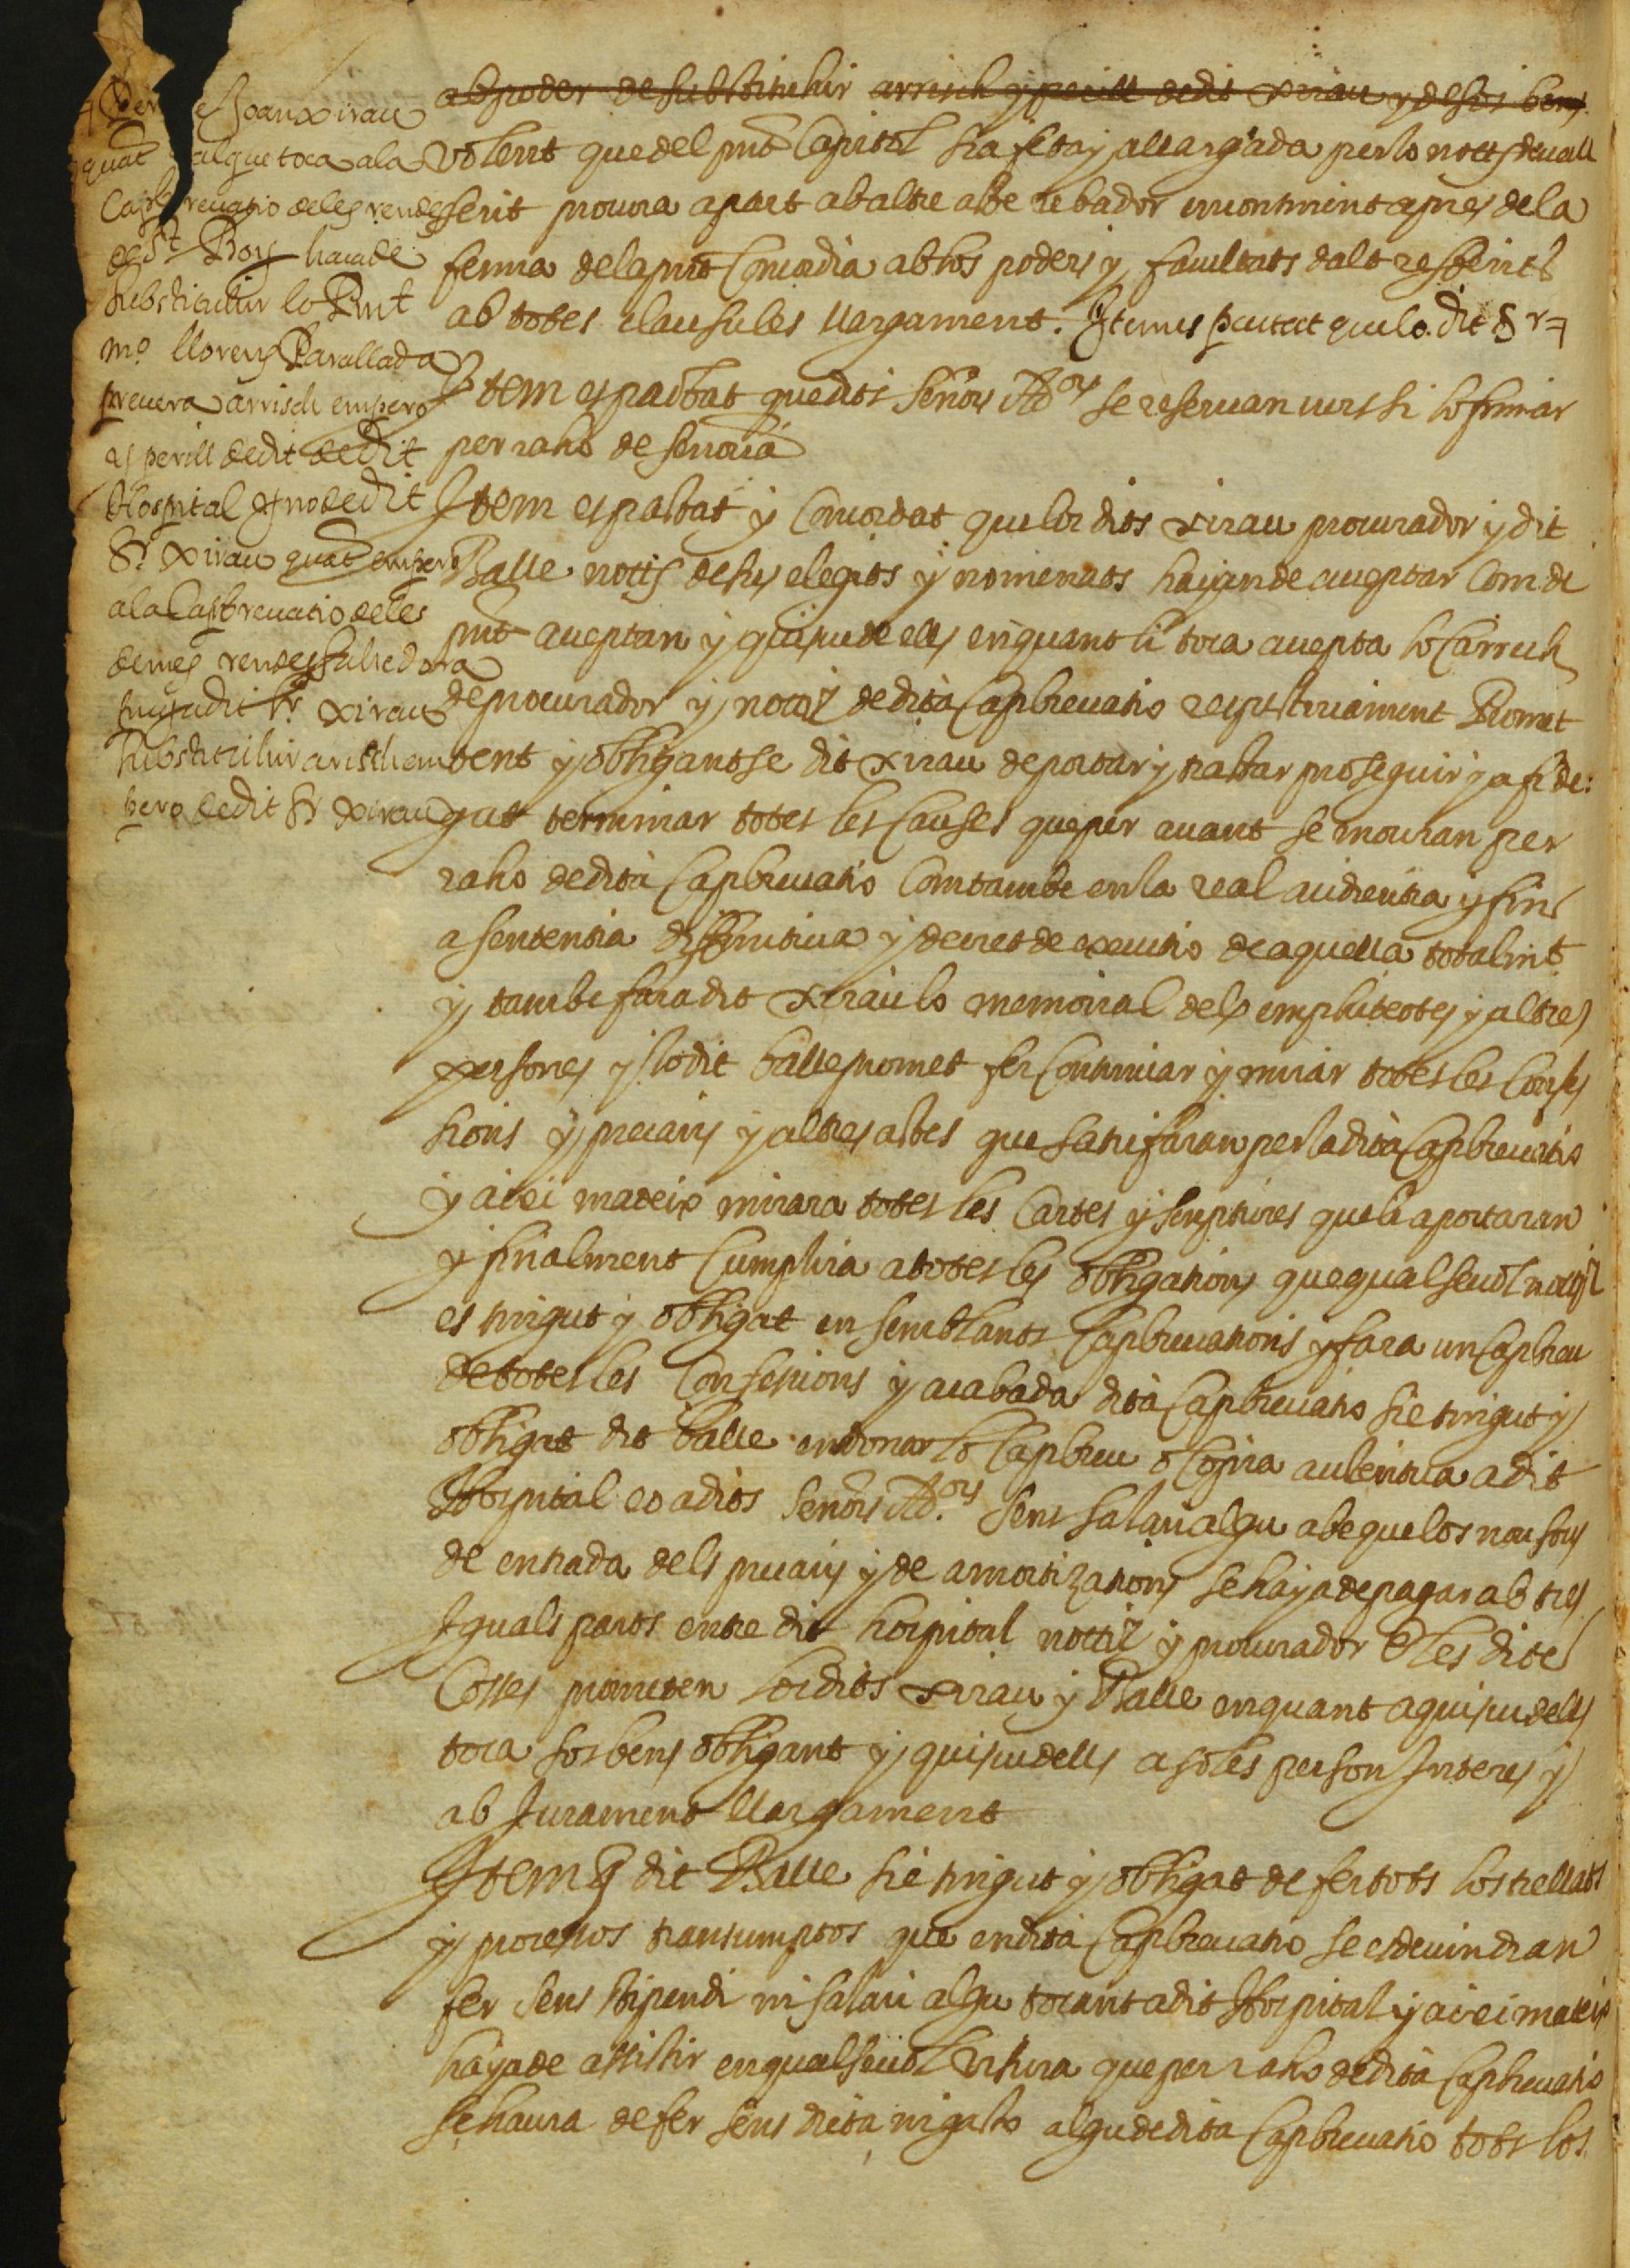 ab poder de substituhir arrisch y perill de dit xirau y de sos bens
volent que del pnt Capitol sia feta y allargada per lo nott devall
scrit procura apart ab altre acte rebador encontinent apres de la
ferma de la pnt Concordia ab los poders y facultats dalt referits
ab totes clausules llargament. Item es pactat que lo dit Sr
Item es pactat que dits Señors Adors se reservan vers si lo firmar
per raho de señoria
Item es pactat y Concordat que los dits xirau procurador y dit
Balle nottj desus elegits y nomenats hajan de acceptar Com de
pnt acceptan y quiscu de ells en quant li toca accepta lo Carrech
de procurador y nottj de dita Capbrevatio respectivament Promet
tent y obligantse dit xirau de portar y tractar proseguir y a fi de:
gut terminar totes les Causes que per avant se mouran per
raho de dita Capbrevatio Com tambe en la real audientia y fins
a sententia diffinitiva y decret de executio de aquella totalmt
y tambe fara dit xirau lo memorial dels emphiteotes y altres
persones y lo dit balle promet fer Continuar y mirar totes les Confes
sions y precaris y altres actes que se hi faran per la dita Capbrevatio
y axi mateix mirara totes les Cartes y scriptures que li aportaran
y finalment Cumplira a totes les obligations que qualsevol nottj
es tingut y obligat en semblants Capbrevations y fara un Capbreu
de totes les Confessions y acabada dita Capbrevatio sie tingut y
obligat dit balle en donar lo Capbreu o Copia autentica a dit
Hospital eo a dits Señors Ador. sens salari algu ab que los
de entrada dels precaris y de amortizations se haja de pagar ab tres
Iguals parts entre dit hospital nottj y procurador E les dites
Coses prometen los dits xirau y Balle en quant a quiscu dells
toca sos bens obligant y quiscu dells a soles per son Interes y
ab Jurament llargament
Item q dit Balle sie tingut y obligat de fer tots los trellats
y processos transumptos que en dita Capbrevatio se esdevindran
fer sens stipendi ni salari algu tocant a dit Hospital y axi mateix
haja de assistir en qualsevol Visura que per raho de dita Capbrevatio
se haura de fer sens dieta ni gasto algu de dita Capbrevatio tots los
Joan xirau
quat al que toca a la
Capbrevatio de les rendes
de St Boy haja de
substituhir lo Rnt
mo llorens Parallada
prevere arrisch empero
y perill de dit de dit
Hospital y no de dit
Sr xirau quat empero
a la Capbrevatio de les
demes rendes
puga dit Sr xirau
substituhir arisch em
pero de dit Sr xirau